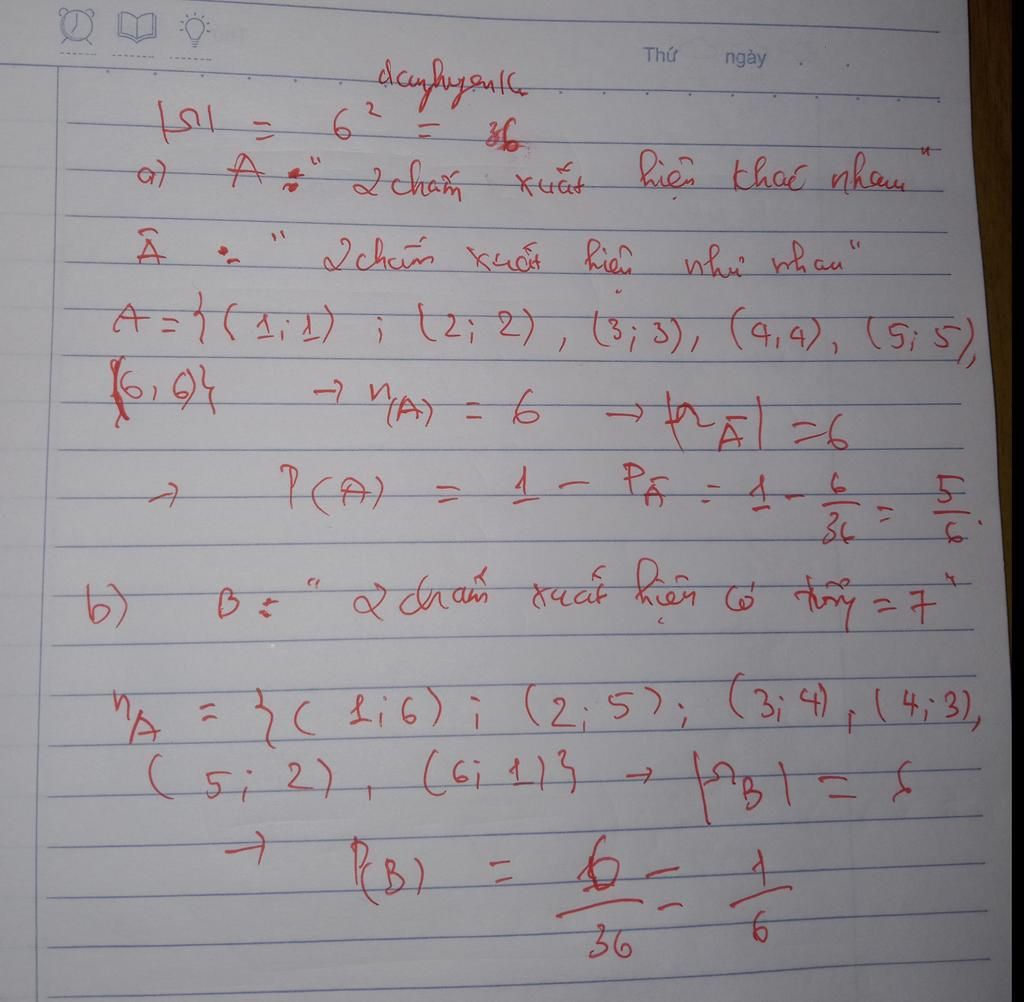 Thứ ngày . .
dayhyenlc
|Ω| = 6² = 36
a) A : " 2 chấm xuất hiện khác nhau "
Ā : " 2 chấm xuất hiện như nhau "
A = {(1;1) ; (2;2), (3;3), (4,4), (5;5),
(6,6)} → n(A) = 6 → |Ω_Ā| = 6
→ P(A) = 1 - P_Ā = 1 - 6/36 = 5/6.
b) B : " 2 chấm xuất hiện có tổng = 7 "
n_A = {(1;6) ; (2;5) ; (3;4), (4;3),
(5;2), (6;1)} → |Ω_B| = 6
→ P(B) = 6/36 = 1/6